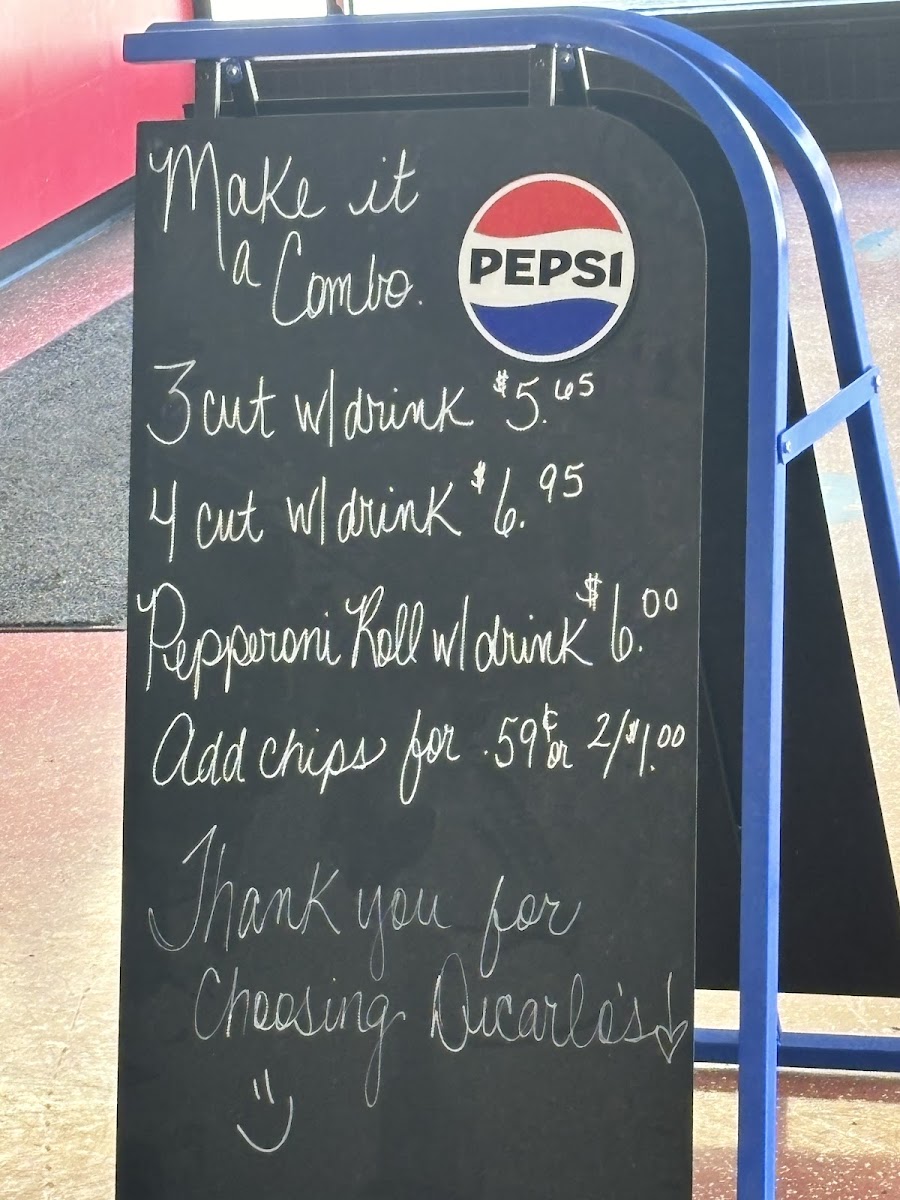 Make it
a Combo.
PEPSI
3 cut w/drink $5.65
4 cut w/drink $6.95
Pepperoni Roll w/drink $6.00
Add chips for .59¢ or 2/$1.00
Thank you for
Choosing Dicarlo's!